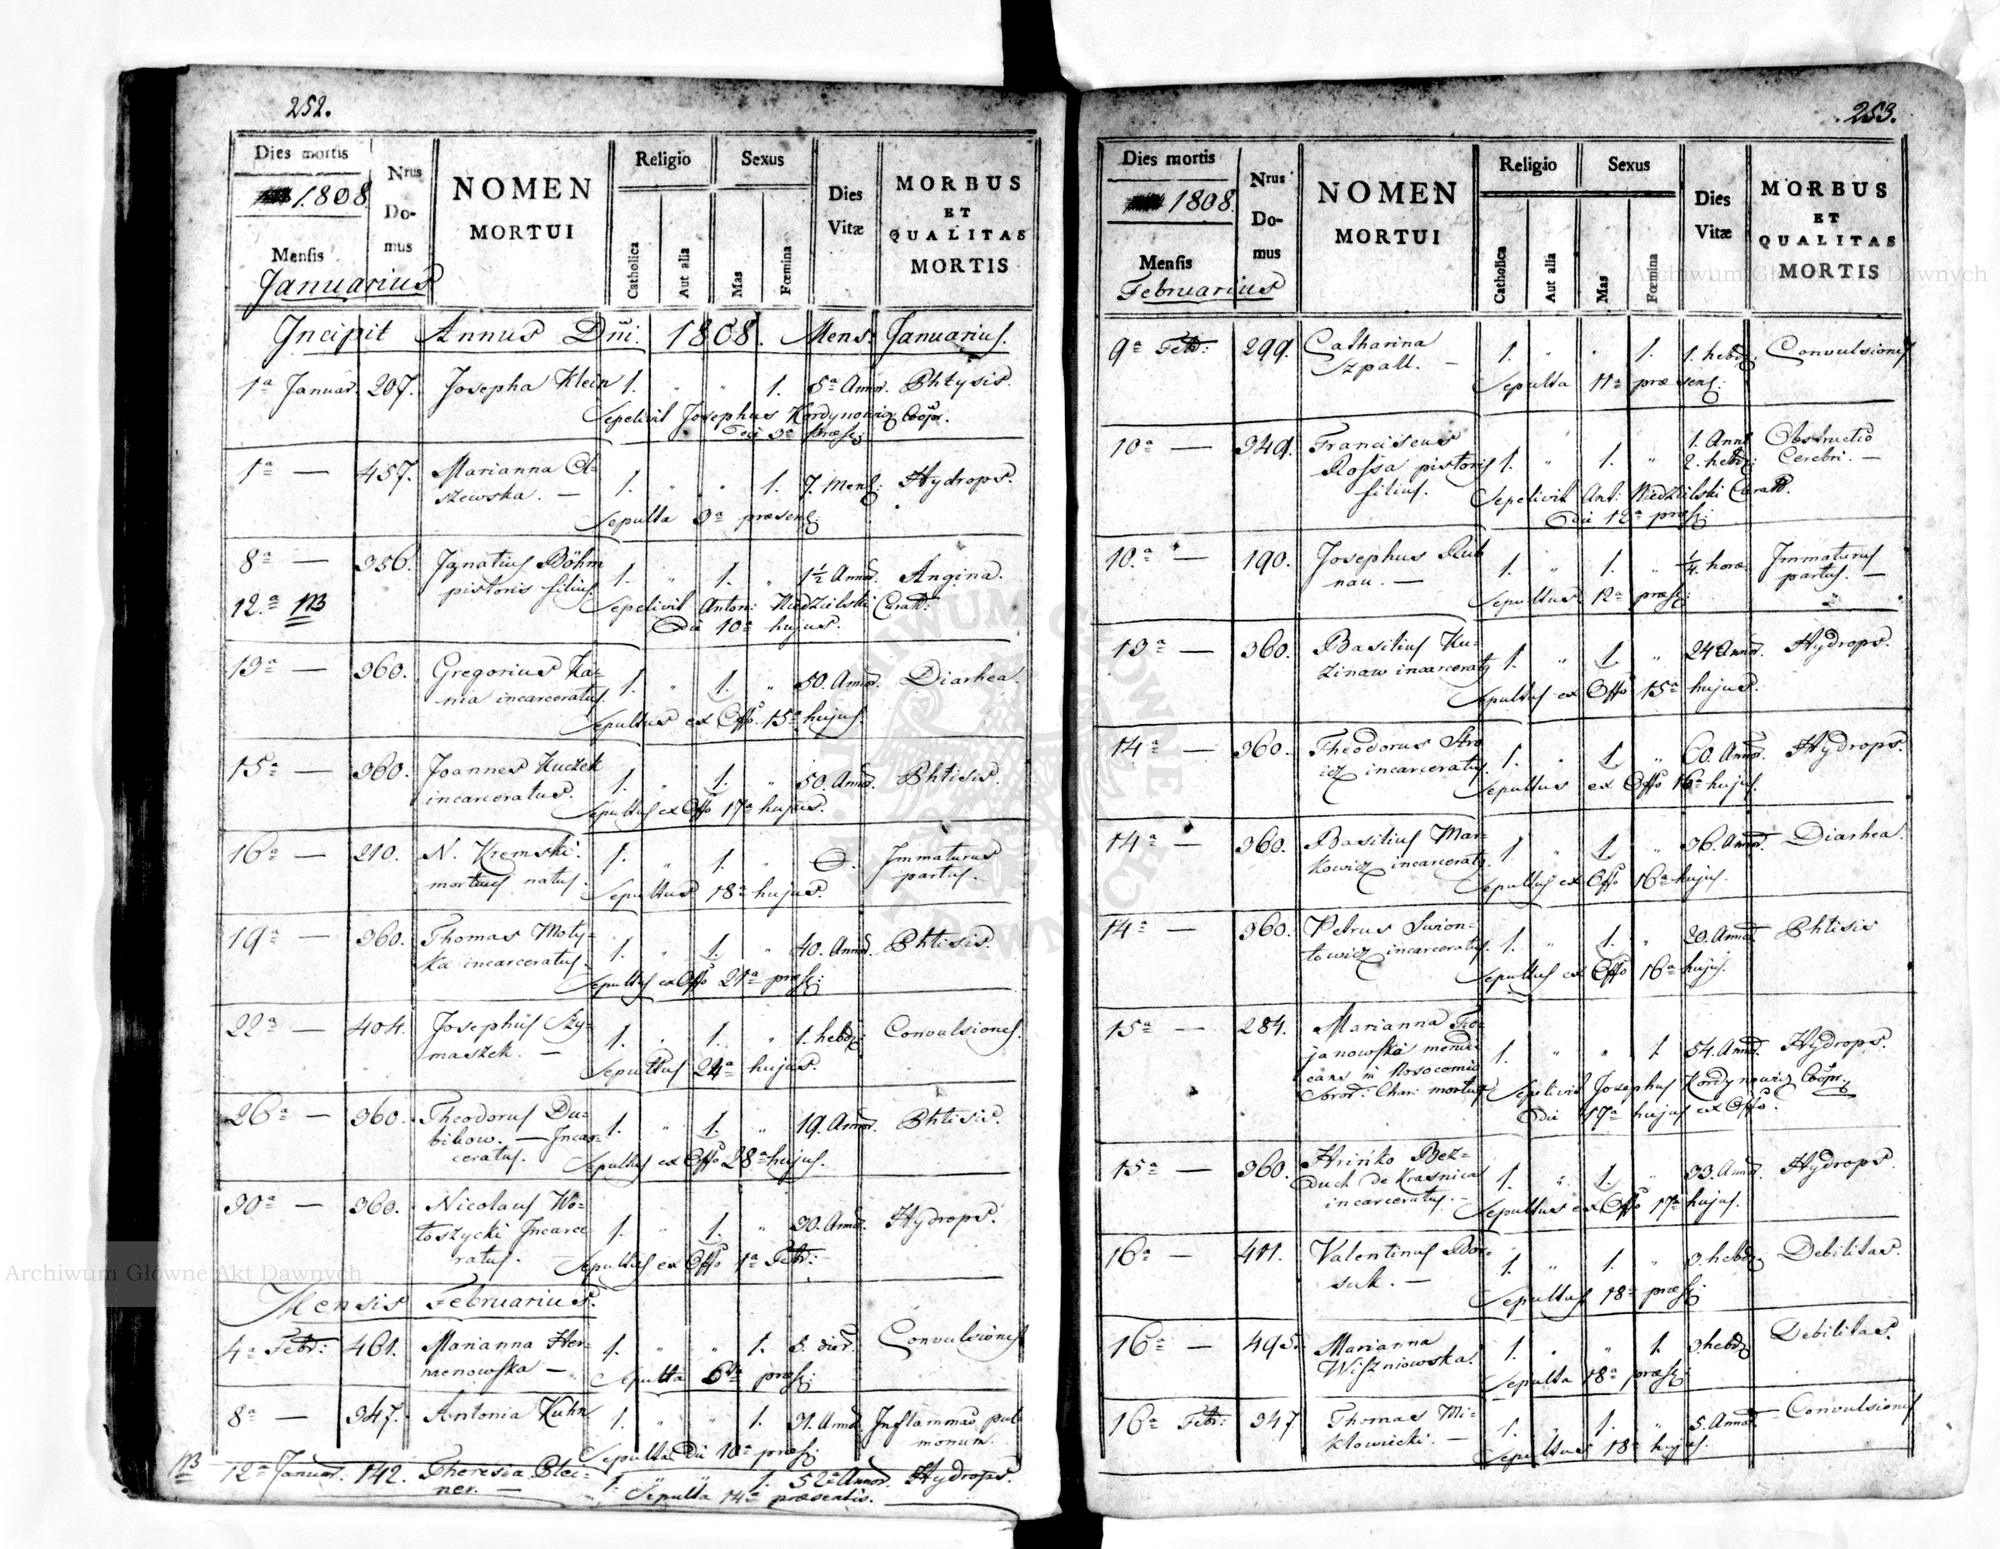 252.
Dies mortis
1808
Mensis
Januarius
Nrus
Do-
mus
NOMEN
MORTUI
Religio
Catholica
Aut alia
Sexus
Mas
Fœmina
Dies
Vitæ
MORBUS
ET
QUALITAS
MORTIS
Incipit Annus Dni. 1808. Mens: Januarius.
1a Januar. 207. Josepha Klein 1. " " 1. 5a Annor. Phtysis.
Sepelivit Josephus Kordynowicz Coopr.
Die 3a præs:
1a — 457. Marianna
szewska. — 1. " " 1. 7. Mens: Hydrops.
Sepulta 3a præsens:
8a — 356. Ignatius Böhm
pistoris filius. 1. " 1. " 1½ Annor. Angina.
12.a NB Sepelivit Anton: Niedzielski Curatt:
Die 10a hujus.
13a — 360. Gregorius Ka-
nia incarceratus. 1. " 1. " 50. Annor. Diarhea.
Sepultus ex Offo. 15a hujus.
15a — 360. Joannes Kuczek
incarceratus. 1. " 1. " 50. Annor. Phtisis.
Sepultus ex Offo 17a hujus.
16a — 210. N. Kremski.
mortuus natus. 1. " 1. " 0. Immaturus
partus.
Sepultus 18a hujus.
19a — 360. Thomas Moty-
ka incarceratus. 1. " 1. " 40. Annor. Phtisis.
Sepultus ex Offo 21a præs:
22a — 404. Josephus Szy-
maszek. — 1. " 1. " 1. hebd: Convulsiones.
Sepultus 24a hujus.
26a — 360. Theodorus Du-
bikow. — Incar-
ceratus. 1. " 1. " 19. Annor. Phtisis.
Sepultus ex Offo 28a hujus.
30a — 360. Nicolaus Wo-
łoszycki Incarce-
ratus. 1. " 1. " 30. Annor. Hydrops.
Sepultus ex Offo 1a Febr:
Mensis Februarius.
4a Febr: 461. Marianna Her-
menowska — 1. " " 1. 5. dier. Convulsiones
Sepulta 6ta præs:
8a — 347. Antonia Kuhn 1. " " 1. 31. Annor. Inflammao pul-
monum.
Sepulta Die 10a præs:
NB 12a Januar. 142. Theresia Plei-
ner. — 1. " " 1. 52a Annor. Hydrops.
Sepulta 14a præsentis.
253.
Dies mortis
1808.
Mensis
Februarius
Nrus
Do-
mus
NOMEN
MORTUI
Religio
Catholica
Aut alia
Sexus
Mas
Fœmina
Dies
Vitæ
MORBUS
ET
QUALITAS
MORTIS
9a Febr: 299. Catharina
Szpall. — 1. " " 1. 1. hebd: Convulsiones
Sepulta 11a præsens:
10a — 349. Franciscus
Rossa pistoris
filius. 1. " 1. " 1. Anni
2. hebd: Obstructio
Cerebri. —
Sepelivit Ant: Niedzielski Curatt.
Die 12a præs:
10.a — 190. Josephus Rub
nau. — 1. " 1. " ¼ horæ Immaturus
partus. —
Sepultus 12a præs:
13a — 360. Basilius Ku-
zinaw incarceratus 1. " 1. " 24 Annor. Hydrops.
Sepultus ex Offo 15a hujus.
14a — 360. Theodorus
icz incarceratus. 1. " 1. " 60. Annor. Hydrops.
Sepultus ex Offo 16a hujus.
14a — 360. Basilius Mar-
kowicz incarceratus. 1. " 1. " 36. Annor. Diarhea.
Sepultus ex Offo 16a hujus.
14a — 360. Petrus Swion-
towicz incarceratus. 1. " 1. " 20. Annor. Phtisis
Sepultus ex Offo 16a hujus.
15a — 284. Marianna Tro-
janowska mendi-
cans in Nosocomio
Soror: Chari: mortua 1. " " 1. 54. Annor. Hydrops.
Sepelivit Josephus Kordynowicz Coopr.
Die 17a hujus ex Offo.
15a — 360. Hrińko Bez-
duch de Krasnica
incarceratus. — 1. " 1. " 33. Annor. Hydrops.
Sepultus ex Offo 17a hujus.
16a — 411. Valentinus Bor-
suk. — 1. " 1. " 3. hebd: Debilitas.
Sepultus 18a præs:
16a — 495. Marianna
Wiszniowska. 1. " " 1. 3. hebd: Debilitas.
Sepulta 18a præs:
16a Febr: 347 Thomas Mi-
kłowiecki. — 1. " 1. " 5. Annor. Convulsiones
Sepultus 18a hujus.
Archiwum Główne Akt Dawnych
Archiwum Główne Akt Dawnych